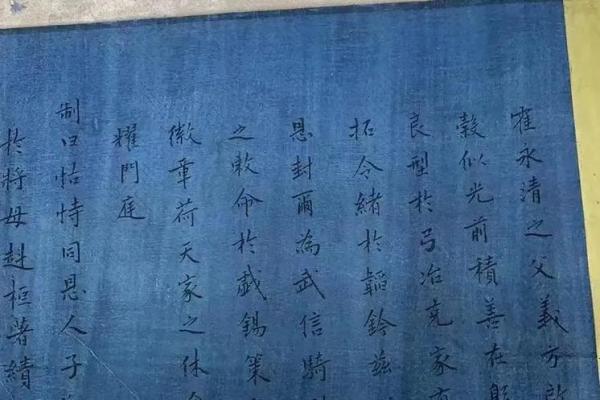 崔永清之父義方啟
穀似光前積善在躬
良型於弓冶克家有
拓令緒於韜鈐茲
恩封爾為武信騎
之敕命於戲錫策
徽章荷天家之休命
耀門庭
制曰怙恃同恩人子
於將母赳桓著績